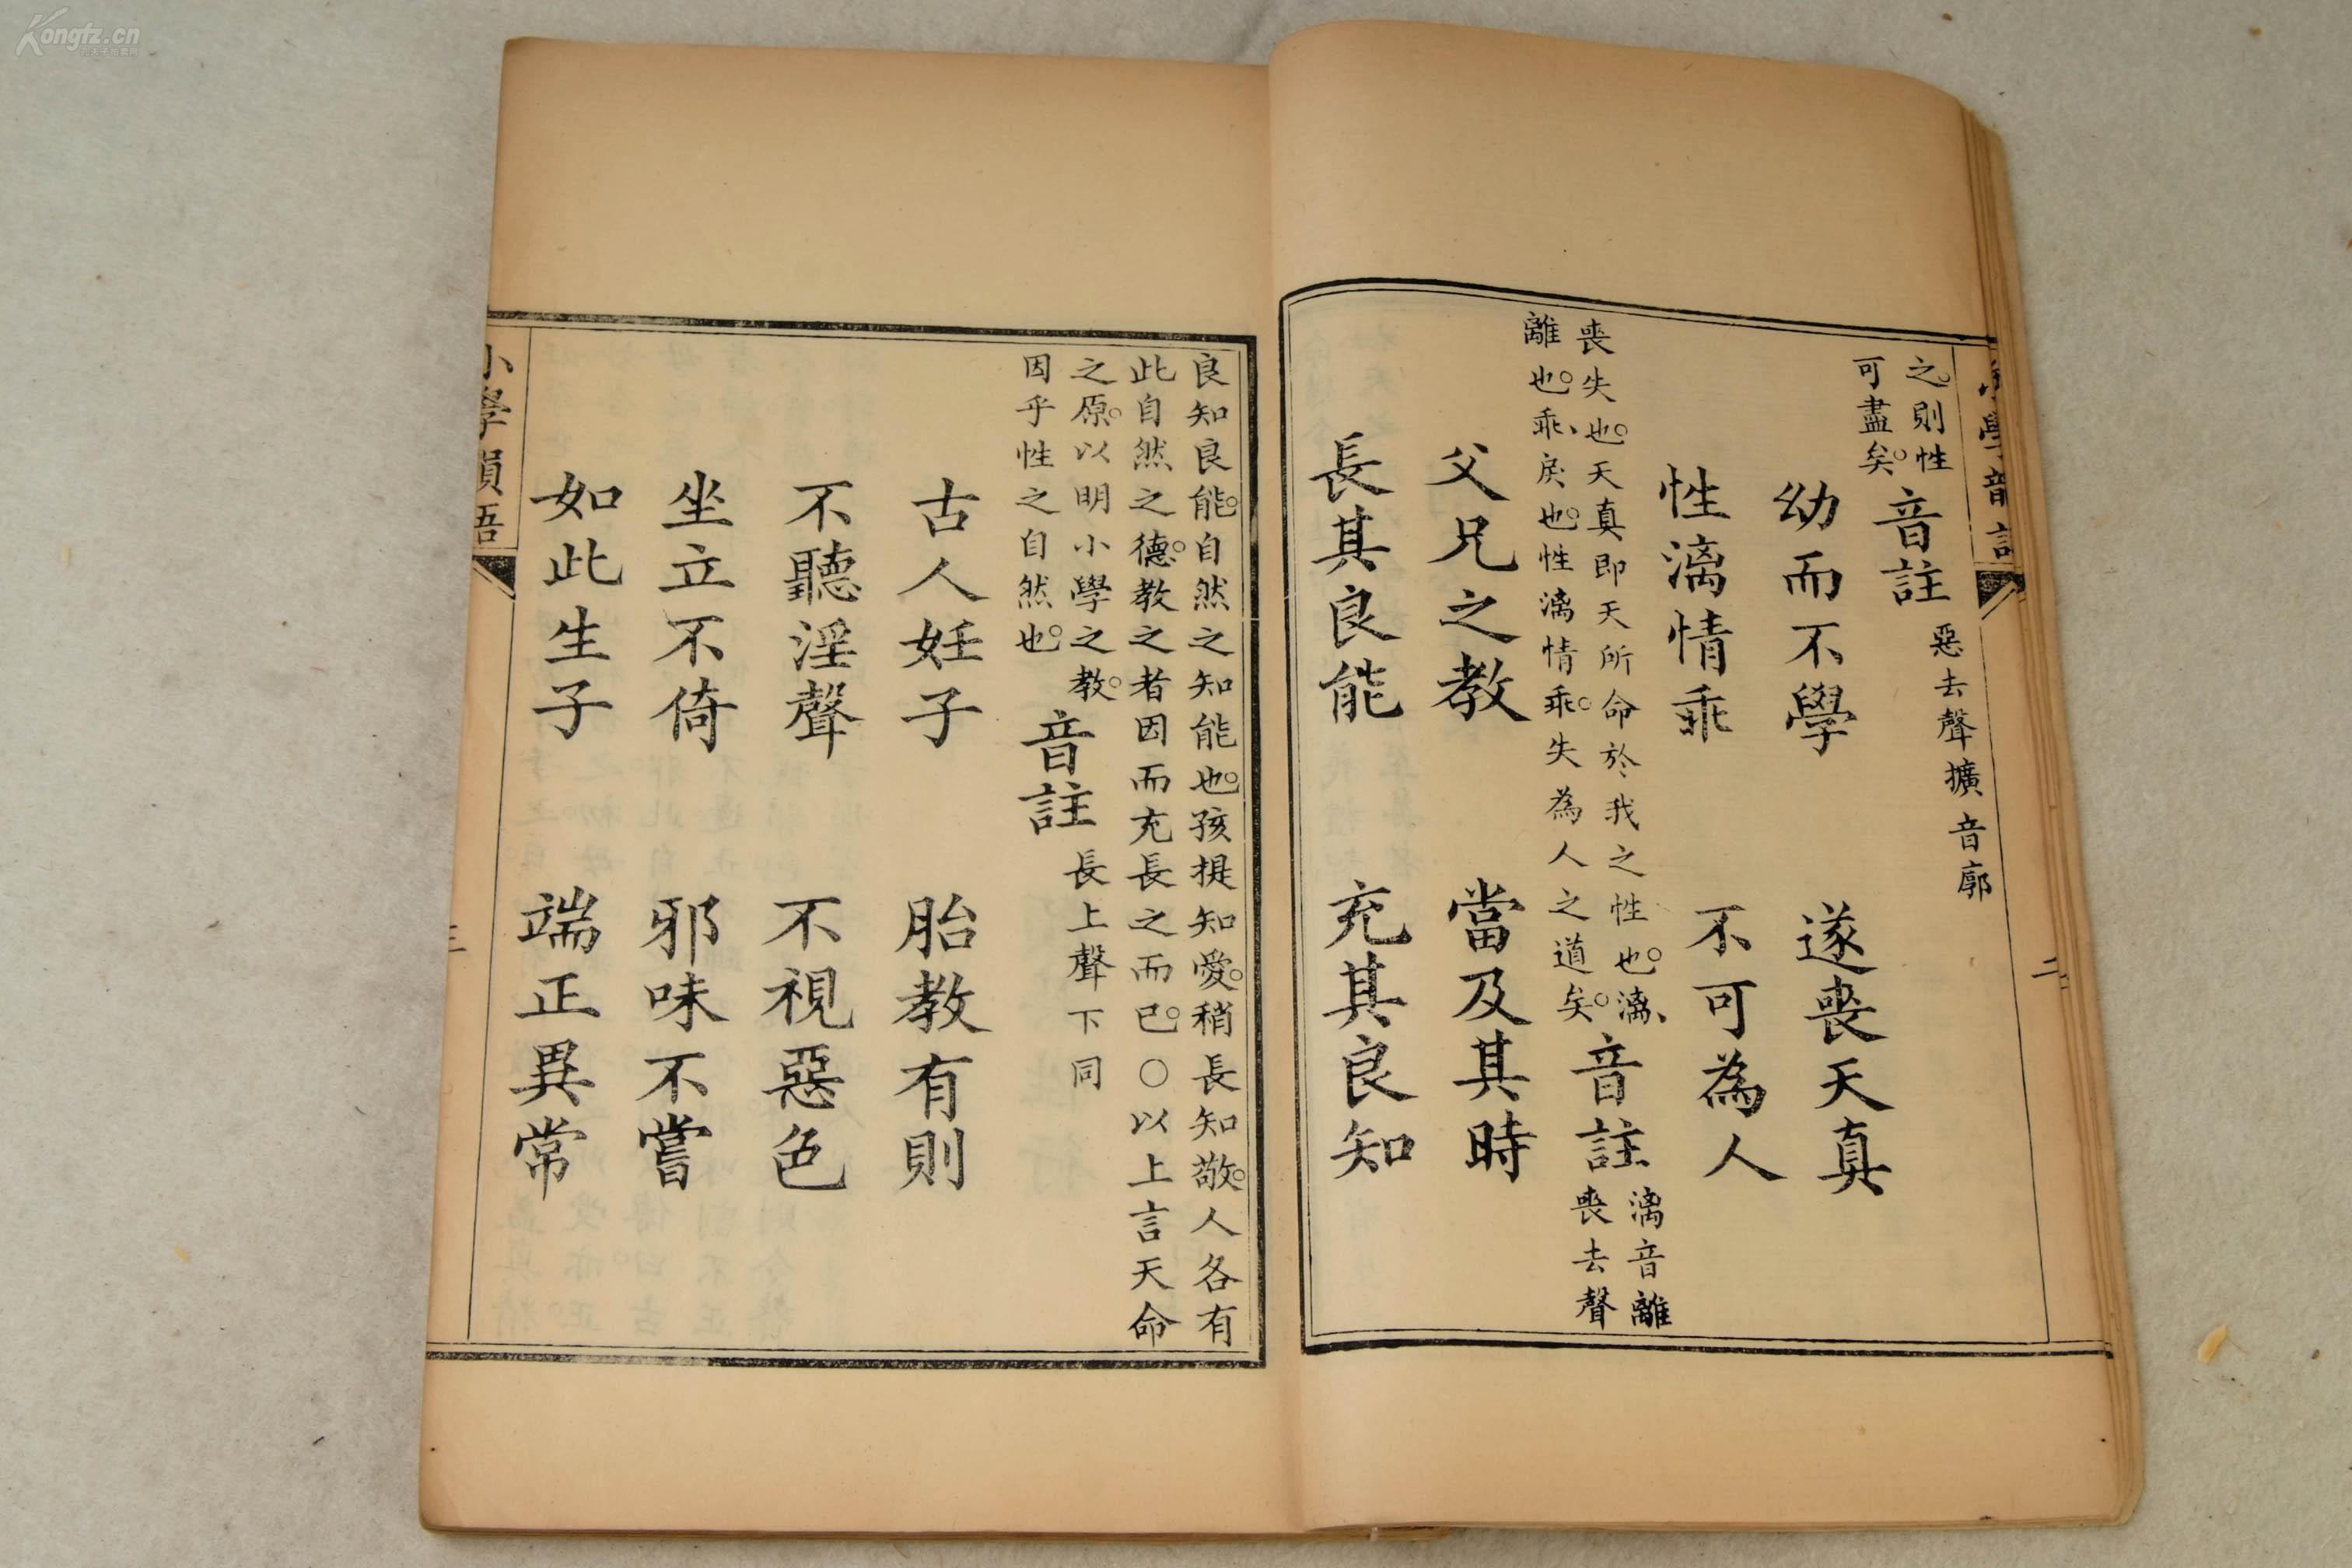 Kongfz.cn
小學韻語
之。則性
可盡矣。
音註
惡去聲擴音廓
幼而不學 遂喪天真
性漓情乖 不可為人
喪失也。天真即天所命於我之性也。漓、
離也。乖、戾也。性漓情乖。失為人之道矣。
音註
漓音離
喪去聲
父兄之教 當及其時
長其良能 充其良知
二
良知良能。自然之知能也。孩提知愛。稍長知敬。人各有
此自然之德。教之者因而充長之而已。○以上言天命
之原。以明小學之教。
因乎性之自然也。
音註
長上聲下同
古人妊子 胎教有則
不聽淫聲 不視惡色
坐立不倚 邪味不嘗
如此生子 端正異常
小學韻語
三